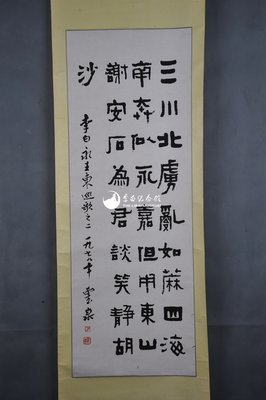 三川北虜亂如蔴四海
南奔似永嘉但用東山
謝安石為君談笑静胡
沙
李白永王東巡歌之二 一九七八年
李白纪念馆